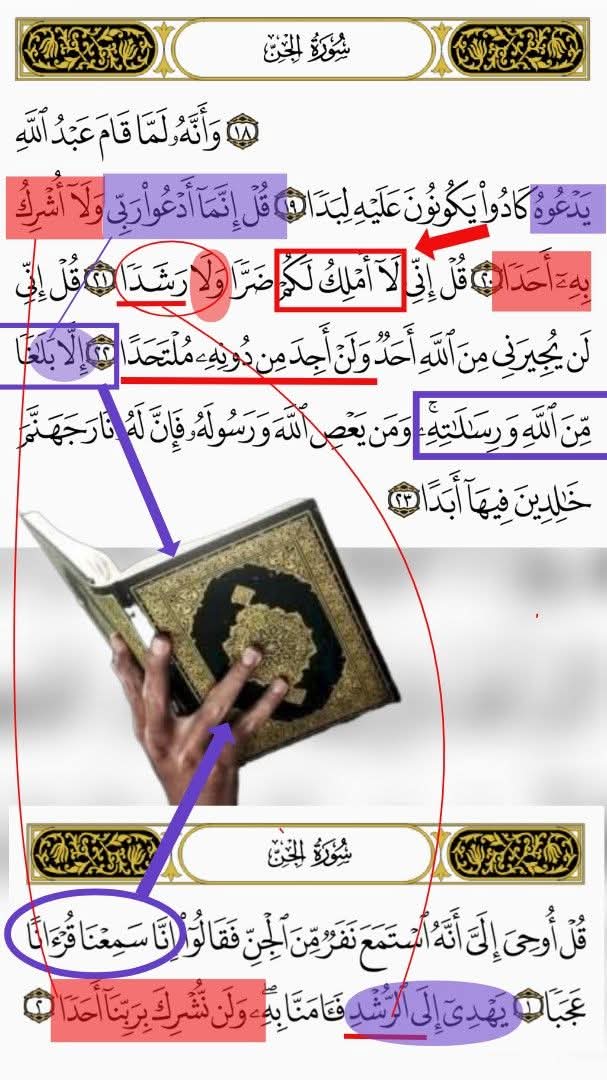 سُورَةُ الجِنّ
۝١٨ وَأَنَّهُۥ لَمَّا قَامَ عَبْدُ ٱللَّهِ
يَدْعُوهُ كَادُوا۟ يَكُونُونَ عَلَيْهِ لِبَدًا ۝١٩ قُلْ إِنَّمَآ أَدْعُوا۟ رَبِّى وَلَآ أُشْرِكُ
بِهِۦٓ أَحَدًا ۝٢٠ قُلْ إِنِّى لَآ أَمْلِكُ لَكُمْ ضَرًّا وَلَا رَشَدًا ۝٢١ قُلْ إِنِّى
لَن يُجِيرَنِى مِنَ ٱللَّهِ أَحَدٌ وَلَنْ أَجِدَ مِن دُونِهِۦ مُلْتَحَدًا ۝٢٢ إِلَّا بَلَـٰغًا
مِّنَ ٱللَّهِ وَرِسَـٰلَـٰتِهِۦ ۚ وَمَن يَعْصِ ٱللَّهَ وَرَسُولَهُۥ فَإِنَّ لَهُۥ نَارَ جَهَنَّمَ
خَـٰلِدِينَ فِيهَآ أَبَدًا ۝٢٣
سُورَةُ الجِنّ
قُلْ أُوحِىَ إِلَىَّ أَنَّهُ ٱسْتَمَعَ نَفَرٌ مِّنَ ٱلْجِنِّ فَقَالُوٓا۟ إِنَّا سَمِعْنَا قُرْءَانًا
عَجَبًا ۝١ يَهْدِىٓ إِلَى ٱلرُّشْدِ فَـَٔامَنَّا بِهِۦ ۖ وَلَن نُّشْرِكَ بِرَبِّنَآ أَحَدًا ۝٢